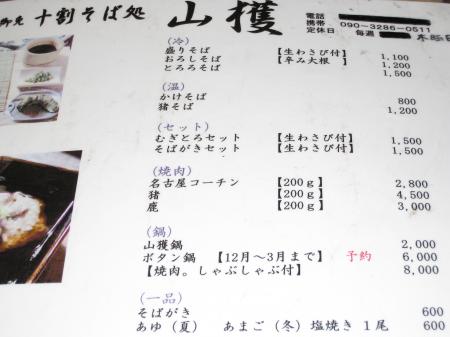 御免 十割そば処 山獲
電話
携帯 090-3286-0511
定休日 毎週 木曜日
(冷)
盛りそば 【生わさび付】 1,100
おろしそば 【辛み大根 】 1,200
とろろそば 1,500
(温)
かけそば 800
猪そば 1,200
(セット)
むぎとろセット 【生わさび付】 1,500
そばがきセット 【生わさび付】 1,500
(焼肉)
名古屋コーチン 【200g】 2,800
猪 【200g】 4,500
鹿 【200g】 3,000
(鍋)
山獲鍋 2,000
ボタン鍋 【12月〜3月まで】 予約 6,000
【焼肉。しゃぶしゃぶ付】 8,000
(一品)
そばがき 600
あゆ(夏) あまご(冬)塩焼き1尾 600